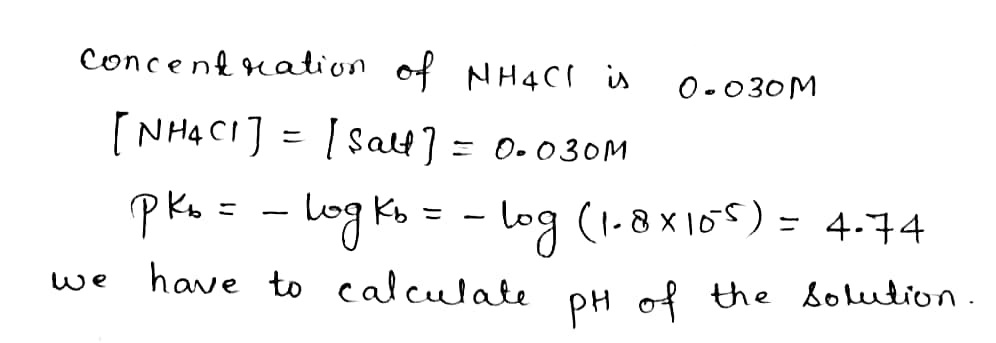 Concentration of NH4Cl is 0.030M
[NH4Cl] = [Salt] = 0.030M
pKb = - log Kb = - log (1.8 x 10^-5) = 4.74
we have to calculate pH of the solution.